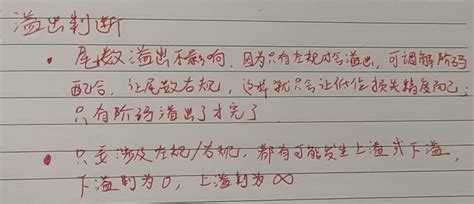 溢出判断
• 尾数溢出不影响,因为只有左规时会溢出,可调解阶码
配合,让尾数右规,这样就只会让低位损失精度而已;
只有阶码溢出了才完了
• 只要涉及左规/右规,都有可能发生上溢或下溢,
下溢判为0,上溢判为∞